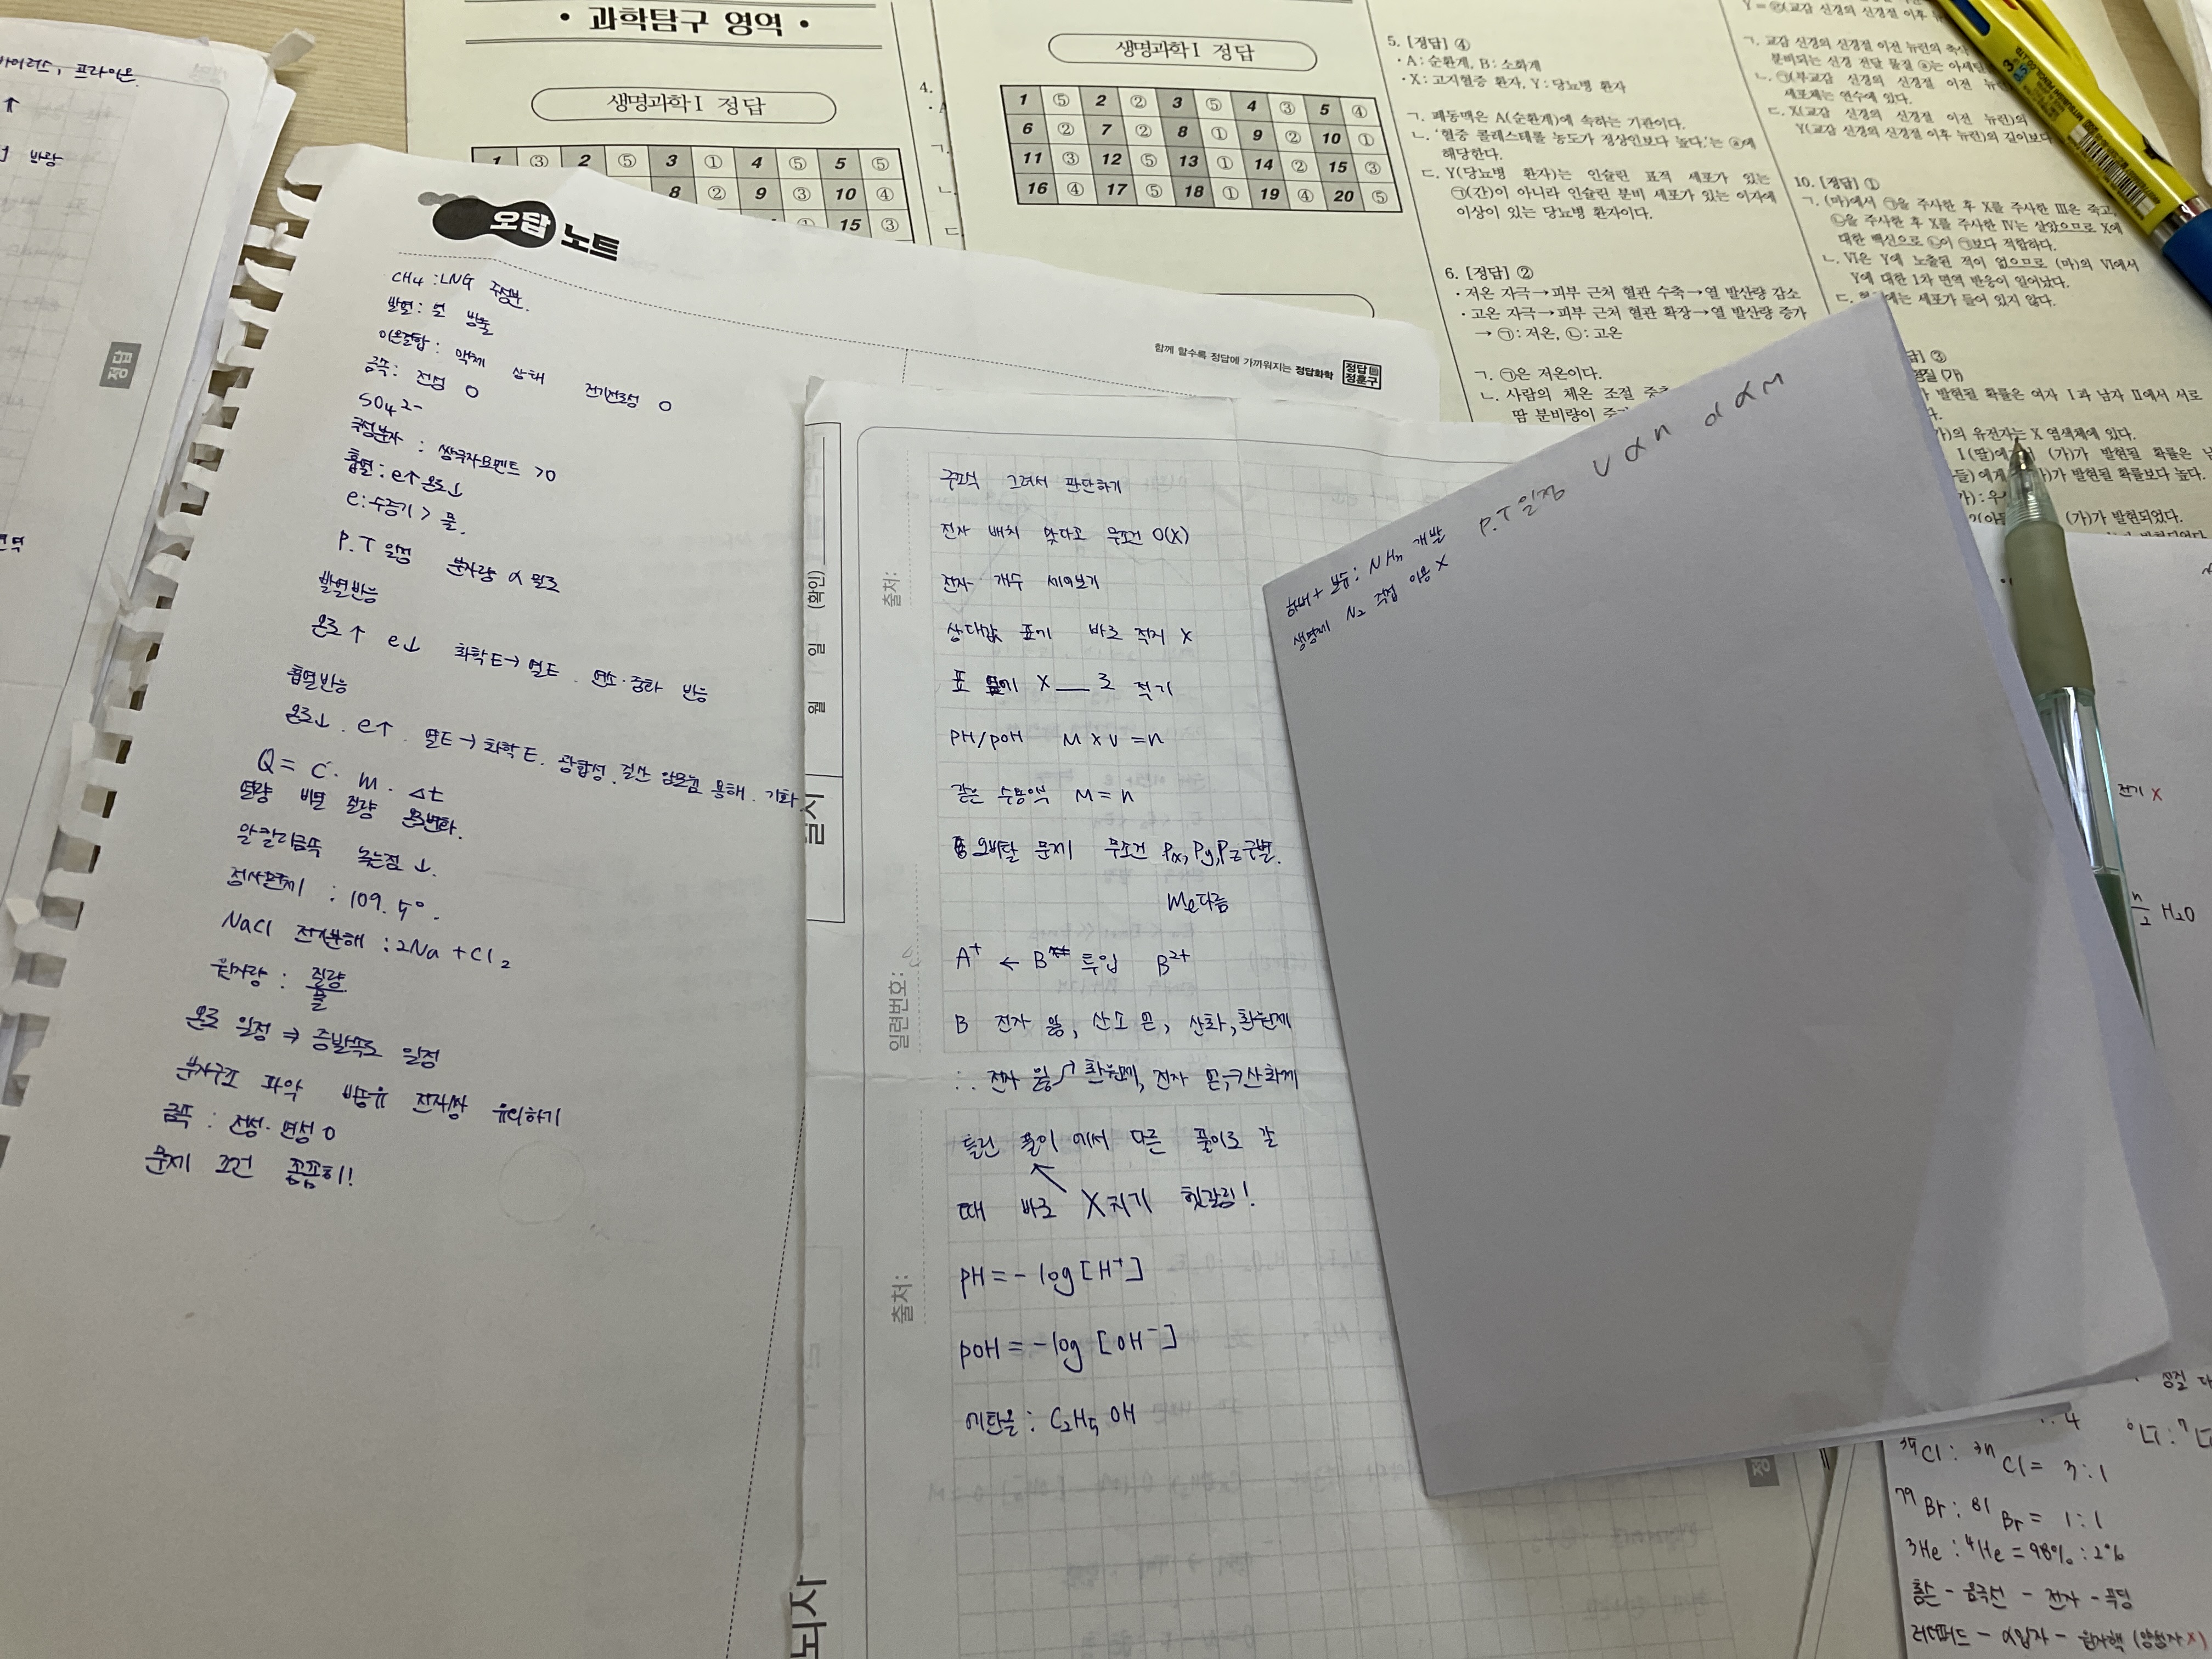 • 과학탐구 영역 •
생명과학Ⅰ 정답
1 ③ 2 ⑤ 3 ① 4 ⑤ 5 ⑤
8 ② 9 ③ 10 ④
15 ③
생명과학Ⅰ 정답
1 ⑤ 2 ② 3 ⑤ 4 ③ 5 ④
6 ② 7 ② 8 ① 9 ② 10 ①
11 ③ 12 ⑤ 13 ① 14 ② 15 ③
16 ④ 17 ⑤ 18 ① 19 ④ 20 ⑤
5. [정답] ④
• A : 순환계, B : 소화계
• X : 고지혈증 환자, Y : 당뇨병 환자
ㄱ. 폐동맥은 A(순환계)에 속하는 기관이다.
ㄴ. '혈중 콜레스테롤 농도가 정상인보다 높다.'는 ⓐ에
해당한다.
ㄷ. Y(당뇨병 환자)는 인슐린 표적 세포가 있는
㉠(간)이 아니라 인슐린 분비 세포가 있는 이자에
이상이 있는 당뇨병 환자이다.
6. [정답] ②
• 저온 자극→피부 근처 혈관 수축→열 발산량 감소
• 고온 자극→피부 근처 혈관 확장→열 발산량 증가
→ ㉠ : 저온, ㉡ : 고온
ㄱ. ㉠은 저온이다.
ㄴ. 사람의 체온 조절 중추
땀 분비량이
ㄱ. 교감 신경의 신경절 이전 뉴런의 축삭
분비되는 신경 전달 물질 ⓐ는
ㄴ. ㉠(부교감 신경의 신경절 이전
세포체는 연수에 있다.
ㄷ. X(교감 신경의 신경절 이전 뉴런)의
Y(교감 신경의 신경절 이후 뉴런)의 길이보다
10. [정답] ①
ㄱ. (마)에서 ㉠을 주사한 후 X를 주사한 Ⅲ은 죽고,
㉡을 주사한 후 X를 주사한 Ⅳ는 살았으므로 X에
대한 백신으로 ㉡이 ㉠보다 적합하다.
ㄴ. Ⅵ은 Y에 노출된 적이 없으므로 (마)의 Ⅵ에서
Y에 대한 1차 면역 반응이 일어났다.
ㄷ. 에는 세포가 들어 있지 않다.
발현될 확률은 여자 Ⅰ과 남자 Ⅱ에서 서로
의 유전자는 X 염색체에 있다.
Ⅰ(딸)에 (가)가 발현될 확률은
(가)가 발현될 확률보다 높다.
(가)가 발현되었다.
바이러스, 프라이온
정답
오답 노트
함께 할수록 정답에 가까워지는 정답화학
정답
정훈구
CH4 : LNG 주성분.
발열 : 열 방출
이온결합 : 액체 상태 전기전도성 O
금속 : 전성 O
SO4 2-
극성분자 : 쌍극자모멘트 >0
흡열 : e↑ 온도↓
e : 수증기 > 물.
P.T 일정 분자량 α 밀도
발열반응
온도↑ e↓ 화학E→열E. 연소·중화 반응
흡열반응
온도↓. e↑. 열E→화학E. 광합성. 질산 암모늄 용해. 기화
Q = C · m · Δt
열량 비열 질량 온도변화.
알칼리금속 녹는점 ↓.
정사면체 : 109.5°.
NaCl 전기분해 : 2Na + Cl2
원자량 : 질량/몰
온도 일정 ⇒ 증발속도 일정
분자구조 파악 비공유 전자쌍 유의하기
금속 : 전성·연성 O
문제 조건 꼼꼼히!
(확인)
월 일
출처:
일련번호:
출처:
뇌자
구조식 그려서 판단하기
전자 배치 맞다고 무조건 O(X)
전자 개수 세어보기
상대값 표기 바로 적지 X
표 옆에 X___로 적기
PH/POH M×V=n
같은 수용액 M=n
오비탈 문제 무조건 Px, Py, Pz구별.
Me다름
A+ ← B 투입 B2+
B 전자 잃, 산소 얻, 산화, 환원제
∴ 전자 잃→환원제, 전자 얻→산화제
틀린 풀이에서 다른 풀이로 갈
때 바로 X치기 헷갈림!
pH = -log[H+]
pOH = -log[OH-]
에탄올 : C2H5OH
하버+보슈 : NH3 개발 P.T일정 V α n d α M
생명체 N2 직접 이용 X
전기 X
n/2 H2O
35Cl : 37Cl = 3:1
79Br : 81Br = 1:1
3He : 4He = 98% : 2%
톰슨 - 음극선 - 전자 - 푸딩
러더퍼드 - α입자 - 원자핵 (양성자 X)